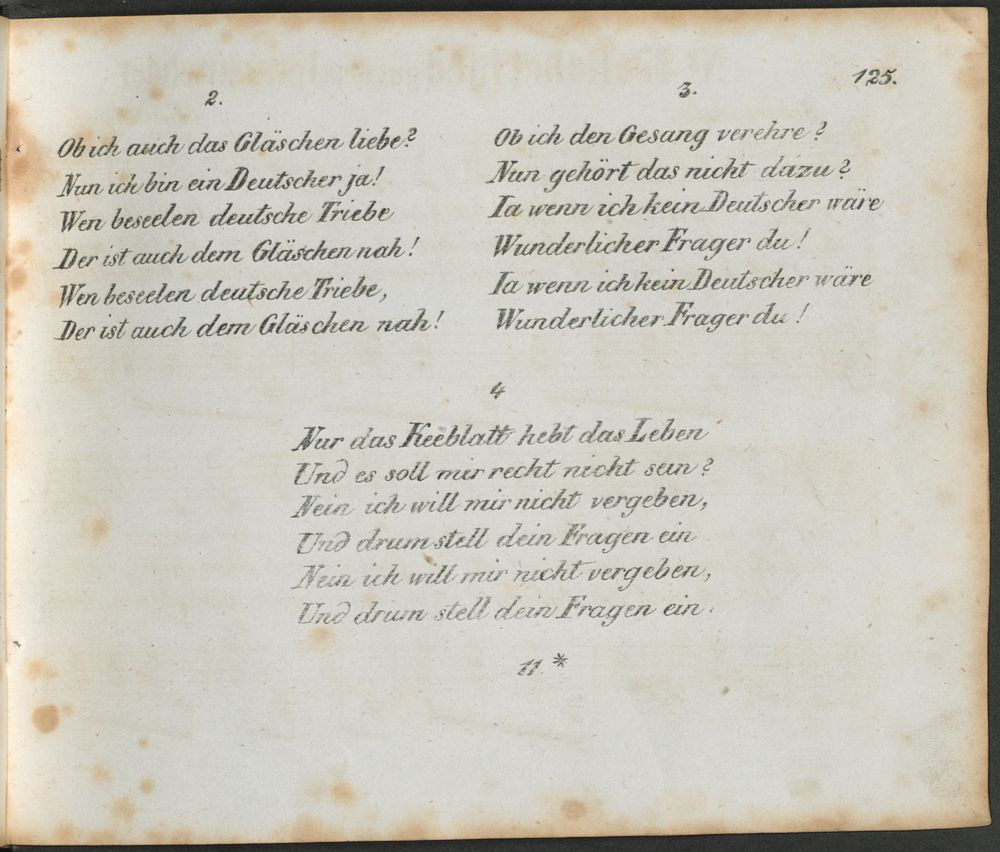 125.
2.
Ob ich auch das Gläschen liebe?
Nun ich bin ein Deutscher ja!
Wen beseelen deutsche Triebe
Der ist auch dem Gläschen nah!
Wen beseelen deutsche Triebe,
Der ist auch dem Gläschen nah!
3.
Ob ich den Gesang verehre?
Nun gehört das nicht dazu?
Ia wenn ich kein Deutscher wäre
Wunderlicher Frager du!
Ia wenn ich kein Deutscher wäre
Wunderlicher Frager du!
4
Nur das Keeblatt hebt das Leben
Und es soll mir recht nicht sein?
Nein ich will mir nicht vergeben,
Und drum stell dein Fragen ein
Nein ich will mir nicht vergeben,
Und drum stell dein Fragen ein.
11.*